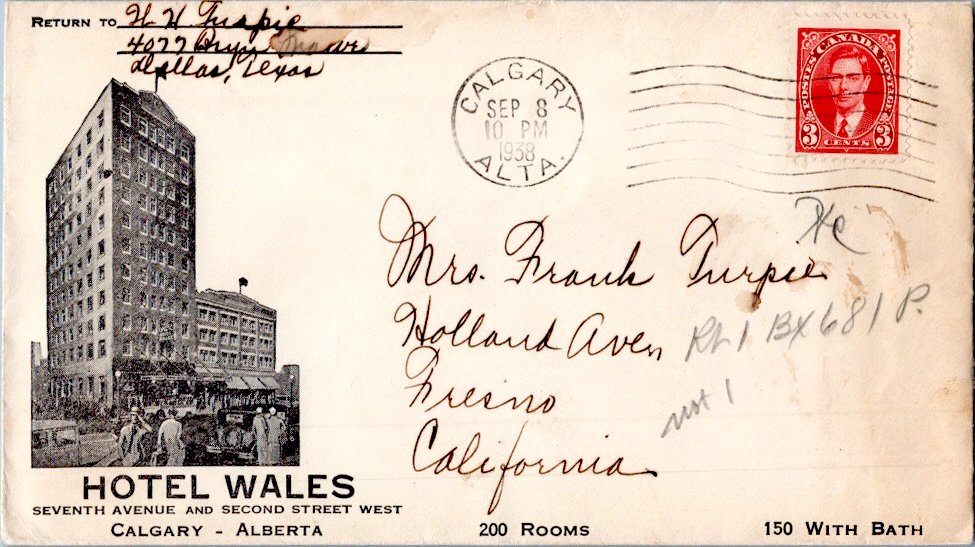 RETURN TO H H Turpie
4077 Bryn Mawr
Dallas, Texas
CALGARY
SEP 8
10 PM
1938
ALTA.
CANADA
POSTES POSTAGE
3 CENTS 3
Mrs. Frank Turpie
Holland Aven
Fresno
California
Rt 1 BX 681 P.
not 1
HOTEL WALES
SEVENTH AVENUE AND SECOND STREET WEST
CALGARY - ALBERTA
200 ROOMS
150 WITH BATH